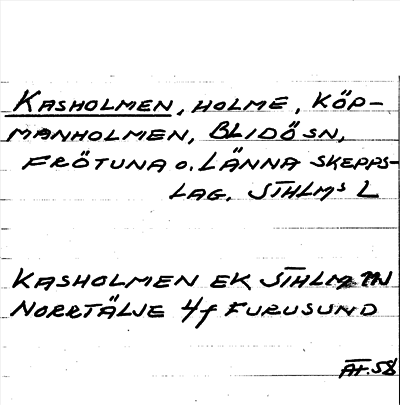 KASHOLMEN, HOLME, KÖP-
MANHOLMEN, BLIDÖ SN,
FRÖTUNA o. LÄNNA SKEPPS-
LAG. STHLMS L
KASHOLMEN EK STHLM
NORRTÄLJE 4f FURUSUND
AT.58